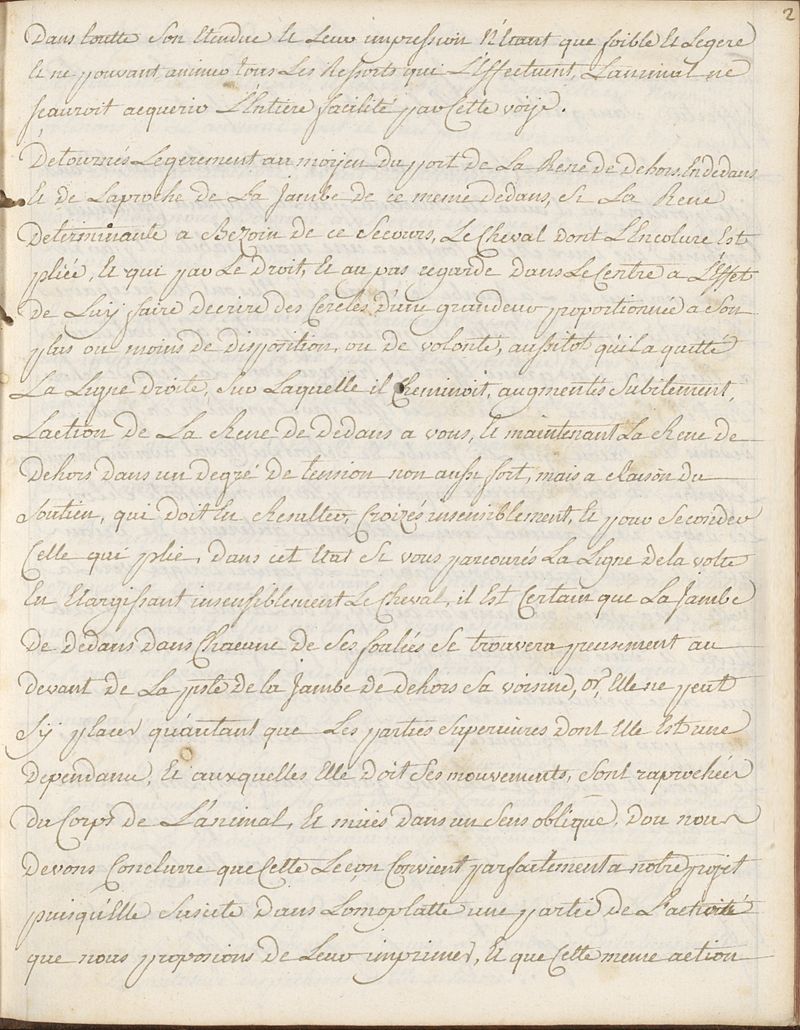 2
Dans toutte Son Etendue Et Leur impression N'Etant que foible Et Legere
Et ne pouvant animer tous Les Ressorts qui L'Effectuent, L'animal ne
scauroit acquerir L'Entiere facilité par Cette voije.
Detournés Legerement au moijen du port de La Rene de dehors En dedans
Et de Laproche de La Jambe de ce meme dedans, Si La Rene
Determinante a Bezoin de ce Secours, Le Cheval dont L'Encolure Est
pliée, Et qui par Le Droit, Et au pas regarde dans Le Centre a L'Effet
de Luij faire decrire des Cercles d'une grandeur proportionnée a Son
plus ou moins de disposition, ou de volonté, aussitot qu'il a quitté
La Ligne droite, Sur Laquelle il Cheminoit, augmentés Subitement,
L'action de La Rene de dedans a vous, Et maintenant La Rene de
dehors dans un degré de tension non aussi fort, mais a Raison du
Soutien, qui doit En Resulter, Croizés insensiblement, Et pour Seconder
Celle qui plie, dans cet Etat Si vous parcourés La Ligne de la volte
En Elargissant insensiblement Le Cheval, il Est Certain que La Jambe
de dedans dans Chacune de Ses foulées Se trouvera precisement au
devant de La piste de la Jambe de dehors Sa voisine, or, Elle ne peut
S'ij placer qu'autant que Les parties Superieures dont Elle Est une
dependance, Et auxquelles Elle doit Ses mouvements, Sont raprochées
du Corps de L'animal, Et muës dans un Sens oblique. Dou nous
devons Conclurre que Cette Lecon Convient parfaitement a notre projet
puisqu'Elle Suscite dans Lomoplatte une partie de L'activité
que nous proposions de Leur imprimer, Et que Cette meme action